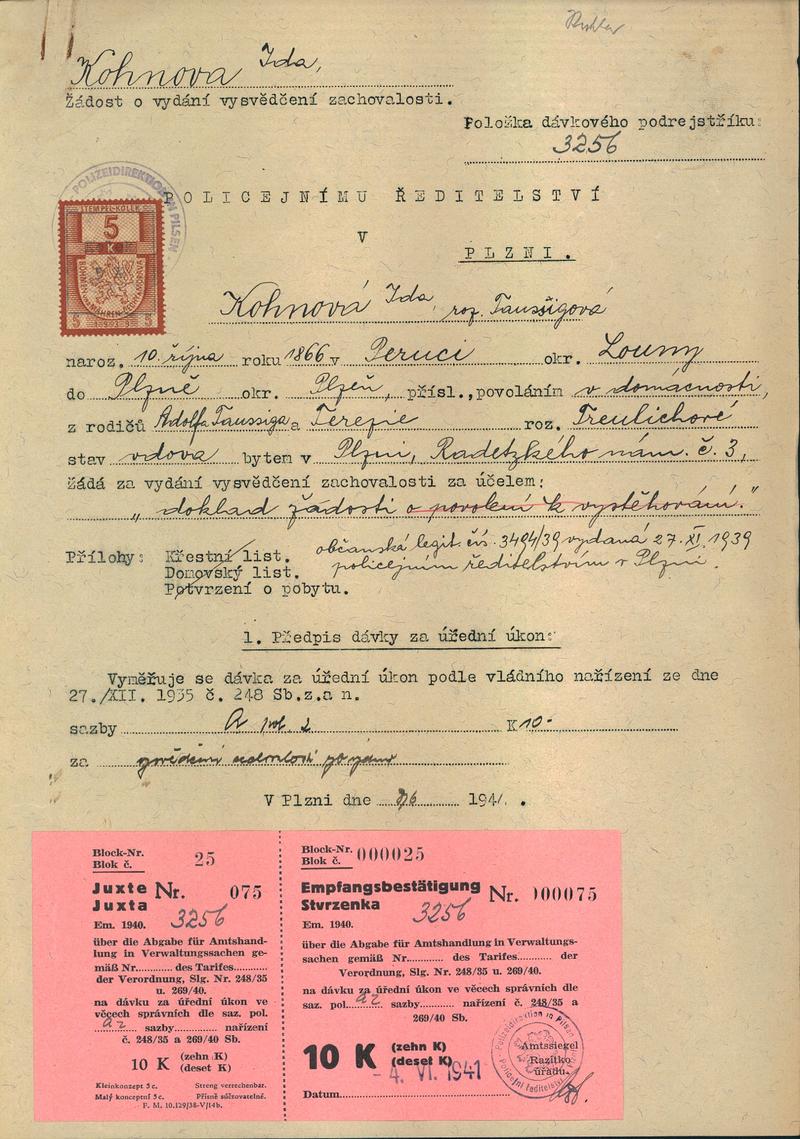 Kohnova Ida,
Žádost o vydání vysvědčení zachovalosti.
Položka dávkového podrejstříku:
3256
POLIZEIDIREKTION PILSEN
STEMPEL-KOLEK
5
K
5 5
POLICEJNÍMU ŘEDITELSTVÍ
V
PLZNI.
Kohnová Ida, roz. Taussigová
naroz. 10. října roku 1866 v Peruci okr. Louny
do Plzně okr. Plzeň, přísl., povoláním v domácnosti,
z rodičů Adolfa Taussiga a Terezie roz. Treulichové
stav vdova bytem v Plzni, Radetzkého nám. č. 3,
žádá za vydání vysvědčení zachovalosti za účelem:
„doklad žádosti o povolení k vystěhování."
Přílohy: Křestní list. občanská legit. čís. 3494/39 vydaná 27. XI. 1939
Domovský list. policejním ředitelstvím v Plzni.
Potvrzení o pobytu.
1. Předpis dávky za úřední úkon:
Vyměřuje se dávka za úřední úkon podle vládního nařízení ze dne
27./XII. 1935 č. 248 Sb.z.a n.
sazby A pol. 2 K 10-
za
V Plzni dne 194 .
Block-Nr.
Blok č. 25
Juxte Nr. 075
Juxta
3256
Em. 1940.
über die Abgabe für Amtshand-
lung in Verwaltungssachen ge-
mäß Nr. des Tarifes
der Verordnung, Slg. Nr. 248/35
u. 269/40.
na dávku za úřední úkon ve
věcech správních dle saz. pol.
a2 sazby nařízení
č. 248/35 a 269/40 Sb.
10 K (zehn K)
(deset K)
Kleinkonzept 5 c. Streng verrechenbar.
Malý konceptní 5 c. Přísně súčtovatelné.
F. M. 10.129/38-V/14b.
Block-Nr.
Blok č. 000025
Empfangsbestätigung Nr. 000075
Stvrzenka
3256
Em. 1940.
über die Abgabe für Amtshandlung in Verwaltungs-
sachen gemäß Nr. des Tarifes der
Verordnung, Slg. Nr. 248/35 u. 269/40.
na dávku za úřední úkon ve věcech správních dle
saz. pol. a2 sazby nařízení č. 248/35 a
269/40 Sb.
10 K (zehn K)
(deset K)
- 4. VI. 1941
Datum
Polizeidirektion in Pilsen
Policejní ředitelství
Amtssiegel
Razítko
úřadu.